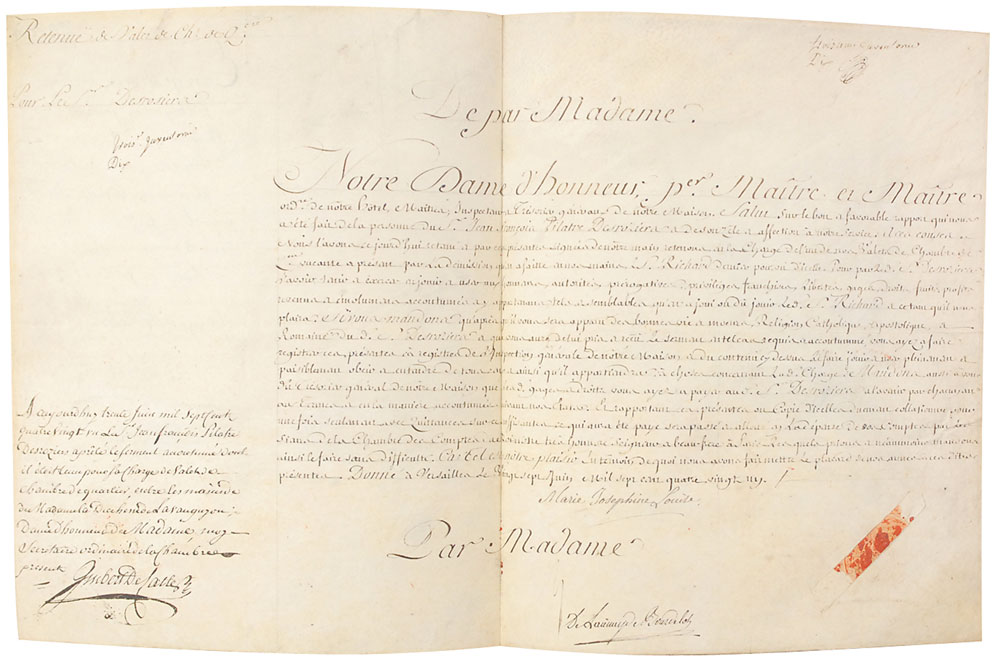 Retenue de Valet de Ch.e de Q.er
Pour Le S.r Desrosiers
Dix
Dix
De par Madame.
Notre Dame d'honneur, p.er Maître et Maître
ord.re de nôtre hotel, Maitres, Inspecteur Trésorier général de nôtre Maison. Salut Sur le bon & favorable rapport qui nous
a été fait de la personne du S.r Jean François Pilatre Desrosiers & de son zèle & affection à notre service. A ces causes
Nous l'avons ce jourd'huy retenu & par ces présentes signées de nôtre main retenons en la Charge de l'un de nos Valets de Chambre de
vacante à présent par la démission qu'en a faite en nos mains le S.r Richard dernier pourvu d'icelle. Pour par led. S.r Desrosiers
l'avoir tenir & exercer en jouir & user aux honneurs, autorités, prérogatives, privilèges, franchises, libertés, gages, droits, fruits, profits
revenus & émolumens accoutumés & y appartenans tels & semblables qu'en a joui ou dû jouir led. S.r Richard & ce tant qu'il nous
plaira. Si vous mandons qu'après qu'il vous sera apparu des bonnes vie & moeurs, Religion Catholique, Apostolique, &
Romaine du d. S.r Desrosiers & que vous aurez de lui pris & reçu le serment en tel cas requis & accoutumé, vous ayez à faire
registrer ces présentes ès registres de l'Inspection générale de nôtre Maison & du contenu cy dessus le faire jouir & user pleinement &
paisiblement obéir & entendre de tous ceux & ainsi qu'il appartiendra ès choses concernant lad. Charge de Mandons aussi
Trésorier général de nôtre Maison que les d. gages & droits vous ayez à payer aud. S.r Desrosiers à l'avenir par chacun an
aux termes & en la manière accoutumée suivant nos Etats. Et rapportant ces présentes ou Copie d'icelles duement collationnée pour
une fois seulement avec Quittances sur ce suffisantes ce qui aura été payé sera passé & alloué en la dépense de vos comptes par les
gens de la Chambre des Comptes de nôtre très honoré Seigneur & beau-frère à Paris
ainsi le faire sans difficulté. Car tel est nôtre plaisir. En témoin de quoi nous avons fait mettre le placard de nos armes à ces dites
présentes. Donné à Versailles le sept Juin Mil sept cent quatre vingt un.
Marie Josephine Louise
Par Madame
A aujourd'hui treize Juin mil sept cent
quatre vingt un Le S.r Jean françois Pilatre
Desroziers a prêté le serment accoutumé dont
il étoit tenu pour la charge de Valet de
chambre de quartier, entre les mains de
de Madame la Duchesse de La Vauguyon
Dame d'honneur de Madame moy
Secretaire ordinaire de la chambre
présent
Imbert De Salle